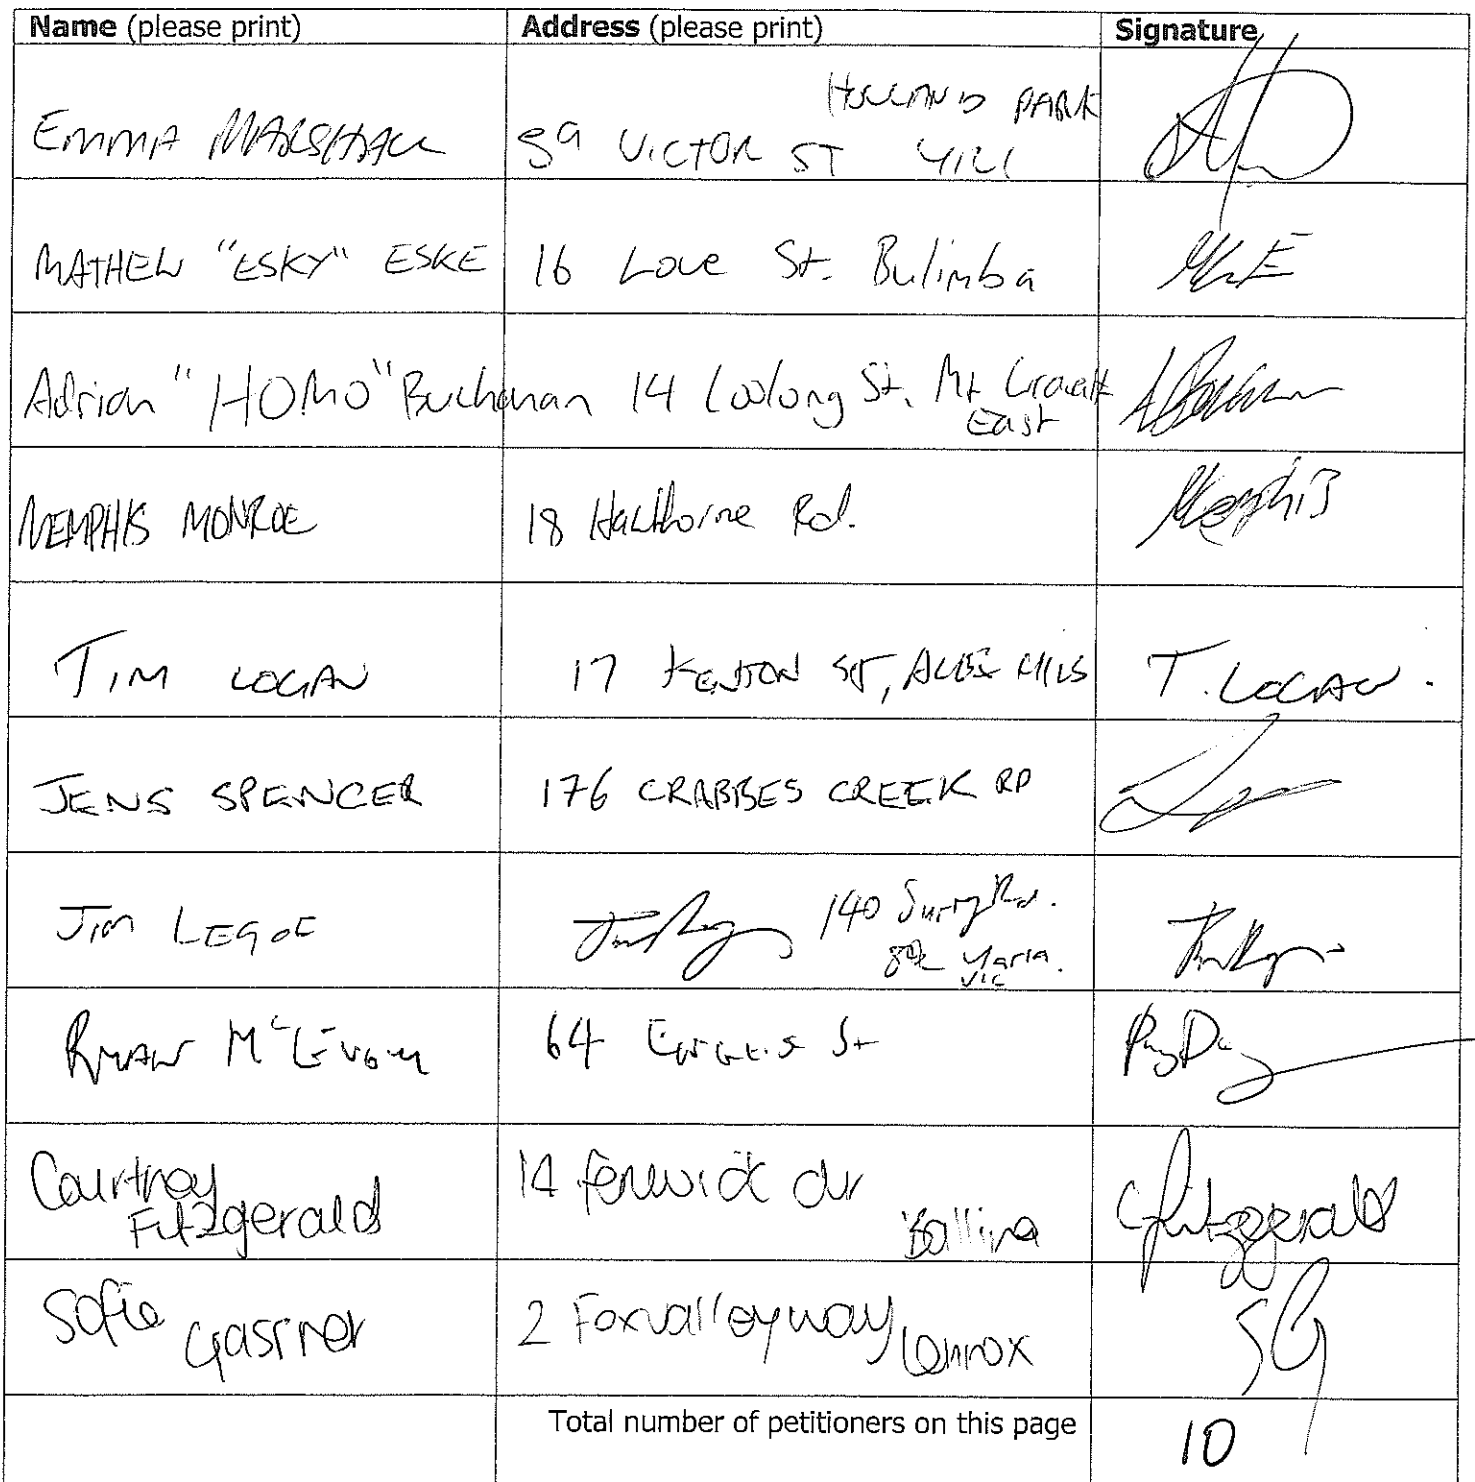 Name (please print) Address (please print) Signature
HOLLAND PARK
EMMA MARSHALL 59 VICTOR ST 4121
MATHEW "ESKY" ESKE 16 Love St. Bulimba
Adrian "HOMO" Buchanan 14 Coolong St. Mt Gravatt
East
MEMPHIS MONROE 18 Hawthorne Rd. Memphis
TIM LOGAN 17 KENTON ST, T. LOGAN.
JENS SPENCER 176 CRABBES CREEK RD
JIM LEGOE 140 Surry Rd.
Yarra.
VIC
RYAN McEVOY 64 St
Courtney 14 fenwick dr
Fitzgerald Ballina CFitzgerald
Sofie 2 Foxvalleyway SG
Gassner Lennox
Total number of petitioners on this page 10